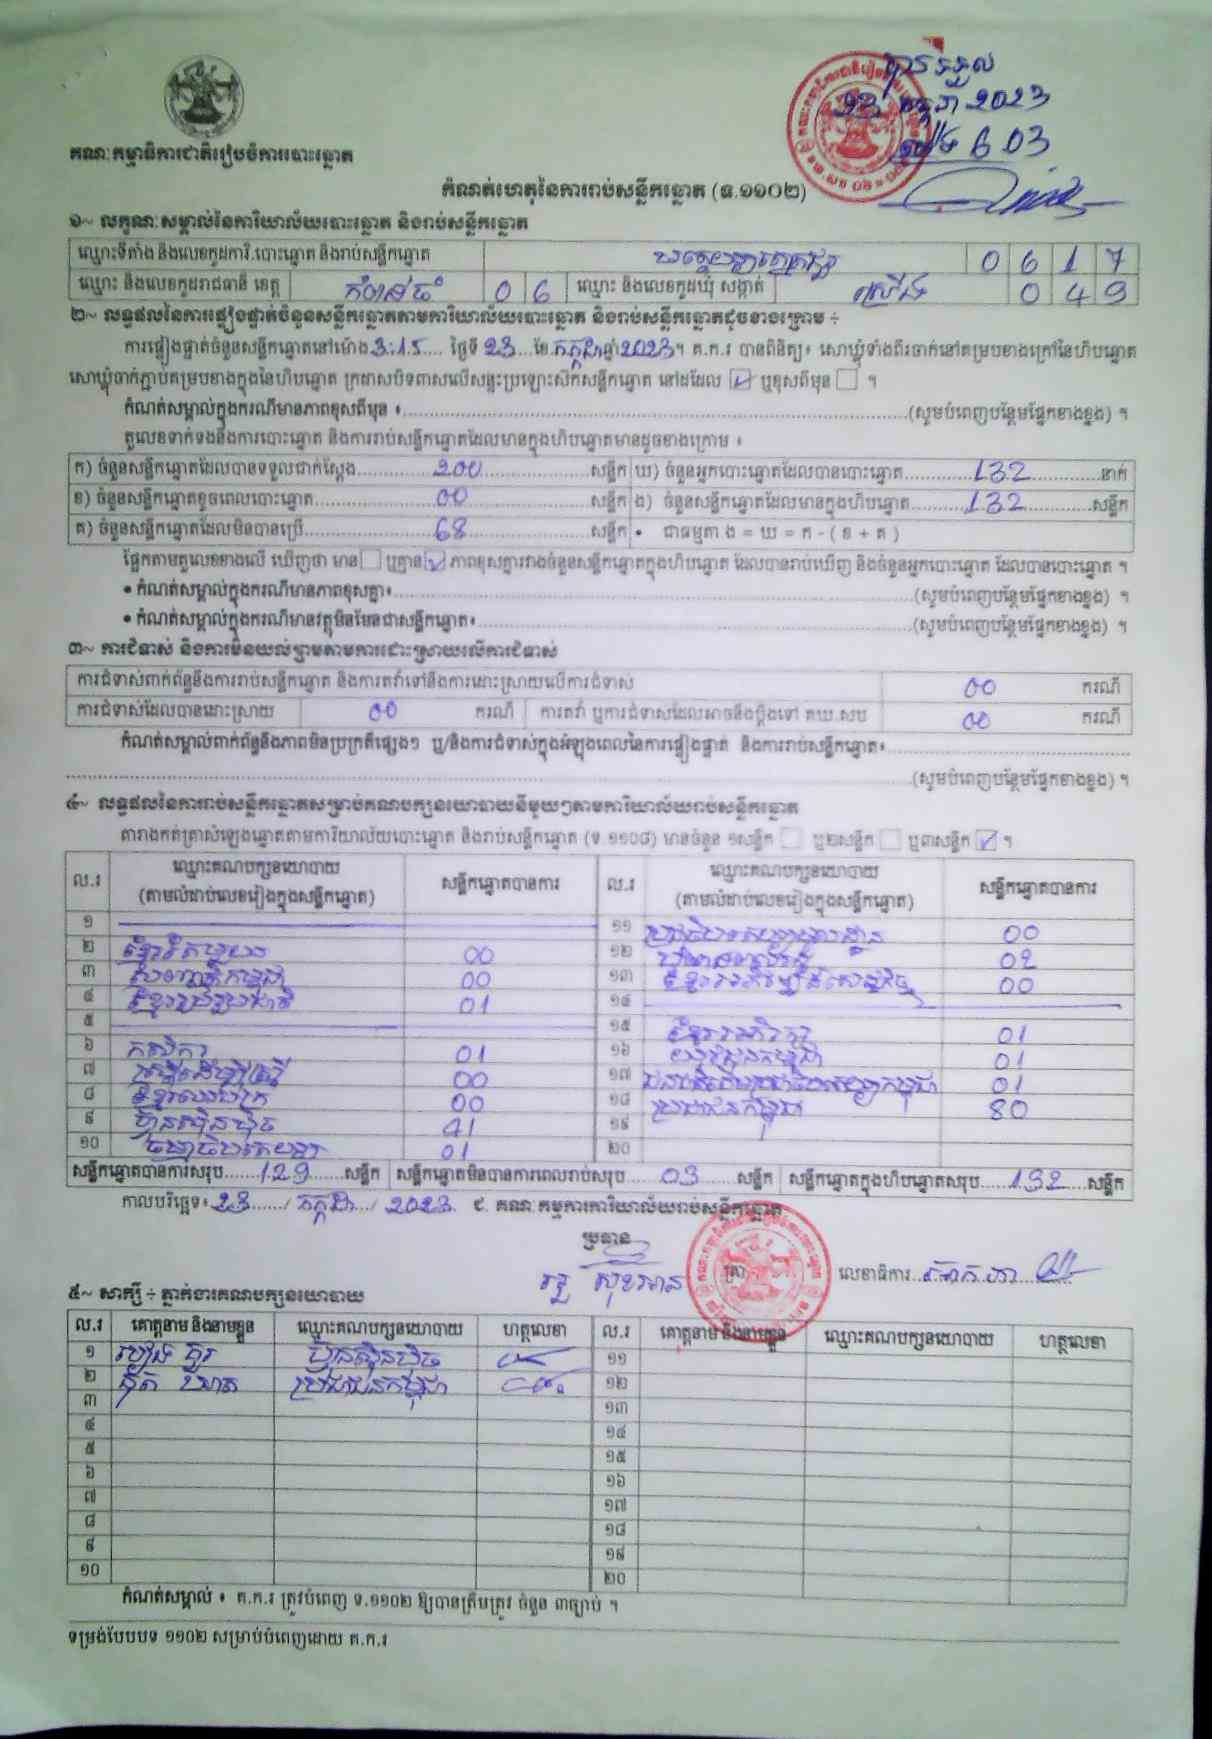 បានទទួល
23 កក្កដា 2023
ម៉ោង 6 03
គណៈកម្មាធិការជាតិរៀបចំការបោះឆ្នោត
កំណត់ហេតុនៃការរាប់សន្លឹកឆ្នោត (ទ.១១០២)
១~ លក្ខណៈសម្គាល់នៃការិយាល័យបោះឆ្នោត និងរាប់សន្លឹកឆ្នោត
ឈ្មោះទីតាំង និងលេខកូដការិ.បោះឆ្នោត និងរាប់សន្លឹកឆ្នោត 0 6 1 7
ឈ្មោះ និងលេខកូដរាជធានី ខេត្ត កំពង់ធំ 0 6 ឈ្មោះ និងលេខកូដឃុំ សង្កាត់ ស្រយ៉ូវ 0 4 9
២~ លទ្ធផលនៃការផ្ទៀងផ្ទាត់ចំនួនសន្លឹកឆ្នោតតាមការិយាល័យបោះឆ្នោត និងរាប់សន្លឹកឆ្នោតដូចខាងក្រោម ÷
ការផ្ទៀងផ្ទាត់ចំនួនសន្លឹកឆ្នោតនៅម៉ោង 3:15 ថ្ងៃទី 23 ខែ កក្កដា ឆ្នាំ 2023។ គ.ក.រ បានពិនិត្យ៖ សោឃ្លុំទាំងពីរចាក់នៅគម្របខាងក្រៅនៃហិបឆ្នោត
សោឃ្លុំចាក់ភ្ជាប់គម្របខាងក្នុងនៃហិបឆ្នោត ក្រដាសបិទពាសលើសន្ទះប្រឡោះសៀកសន្លឹកឆ្នោត នៅដដែល ☑ ឬខុសពីមុន ☐ ។
កំណត់សម្គាល់ក្នុងករណីមានភាពខុសពីមុន ៖ (សូមបំពេញបន្ថែមផ្នែកខាងខ្នង) ។
តួលេខទាក់ទងនឹងការបោះឆ្នោត និងការរាប់សន្លឹកឆ្នោតដែលមានក្នុងហិបឆ្នោតមានដូចខាងក្រោម ៖
ក) ចំនួនសន្លឹកឆ្នោតដែលបានទទួលជាក់ស្តែង 200 សន្លឹក ឃ) ចំនួនអ្នកបោះឆ្នោតដែលបានបោះឆ្នោត 132 នាក់
ខ) ចំនួនសន្លឹកឆ្នោតខូចពេលបោះឆ្នោត 00 សន្លឹក ង) ចំនួនសន្លឹកឆ្នោតដែលមានក្នុងហិបឆ្នោត 132 សន្លឹក
គ) ចំនួនសន្លឹកឆ្នោតដែលមិនបានប្រើ 68 សន្លឹក • ជាធម្មតា ង = ឃ = ក - ( ខ + គ )
ផ្អែកតាមតួលេខខាងលើ ឃើញថា មាន ☐ ឬគ្មាន ☑ ភាពខុសគ្នារវាងចំនួនសន្លឹកឆ្នោតក្នុងហិបឆ្នោត ដែលបានរាប់ឃើញ និងចំនួនអ្នកបោះឆ្នោត ដែលបានបោះឆ្នោត ។
• កំណត់សម្គាល់ក្នុងករណីមានភាពខុសគ្នា៖ (សូមបំពេញបន្ថែមផ្នែកខាងខ្នង) ។
• កំណត់សម្គាល់ក្នុងករណីមានវត្ថុមិនមែនជាសន្លឹកឆ្នោត៖ (សូមបំពេញបន្ថែមផ្នែកខាងខ្នង) ។
៣~ ការជំទាស់ និងការមិនយល់ព្រមតាមការដោះស្រាយលើការជំទាស់
ការជំទាស់ពាក់ព័ន្ធនឹងការរាប់សន្លឹកឆ្នោត និងការតវ៉ាទៅនឹងការដោះស្រាយលើការជំទាស់ 00 ករណី
ការជំទាស់ដែលបានដោះស្រាយ 00 ករណី ការតវ៉ា ឬការជំទាស់ដែលអាចនឹងប្តឹងទៅ គឃ.សប 00 ករណី
កំណត់សម្គាល់ពាក់ព័ន្ធនឹងភាពមិនប្រក្រតីផ្សេងៗ ឬ/និងការជំទាស់ក្នុងអំឡុងពេលនៃការផ្ទៀងផ្ទាត់ និងការរាប់សន្លឹកឆ្នោត៖
(សូមបំពេញបន្ថែមផ្នែកខាងខ្នង) ។
៤~ លទ្ធផលនៃការរាប់សន្លឹកឆ្នោតសម្រាប់គណបក្សនយោបាយនីមួយៗតាមការិយាល័យរាប់សន្លឹកឆ្នោត
តារាងកត់ត្រាសំឡេងឆ្នោតតាមការិយាល័យបោះឆ្នោត និងរាប់សន្លឹកឆ្នោត (ទ.១១០៨) មានចំនួន ១សន្លឹក ☐ ឬ២សន្លឹក ☐ ឬ៣សន្លឹក ☑ ។
ល.រ ឈ្មោះគណបក្សនយោបាយ (តាមលំដាប់លេខរៀងក្នុងសន្លឹកឆ្នោត) សន្លឹកឆ្នោតបានការ ល.រ ឈ្មោះគណបក្សនយោបាយ (តាមលំដាប់លេខរៀងក្នុងសន្លឹកឆ្នោត) សន្លឹកឆ្នោតបានការ
១ ១១ 00
២ 00 ១២ 02
៣ 00 ១៣ ខ្មែរអភិវឌ្ឍន៍សេដ្ឋកិច្ច 00
៤ ខ្មែររួបរួមជាតិ 01 ១៤
៥ ១៥ ខ្មែរអភិរក្ស 01
៦ កសិករ 01 ១៦ យុវជនកម្ពុជា 01
៧ 00 ១៧ 01
៨ 00 ១៨ ប្រជាជនកម្ពុជា 80
៩ ហ៊្វុនស៊ិនប៉ិច 41 ១៩
១០ 01 ២០
សន្លឹកឆ្នោតបានការសរុប 129 សន្លឹក សន្លឹកឆ្នោតមិនបានការពេលរាប់សរុប 03 សន្លឹក សន្លឹកឆ្នោតក្នុងហិបឆ្នោតសរុប 132 សន្លឹក
កាលបរិច្ឆេទ៖ 23 / កក្កដា / 2023 ជ. គណៈកម្មការការិយាល័យរាប់សន្លឹកឆ្នោត
ប្រធាន
ត្រា លេខាធិការ
៥~ សាក្សី ÷ ភ្នាក់ងារគណបក្សនយោបាយ
ល.រ គោត្តនាម និងនាមខ្លួន ឈ្មោះគណបក្សនយោបាយ ហត្ថលេខា ល.រ គោត្តនាម និងនាមខ្លួន ឈ្មោះគណបក្សនយោបាយ ហត្ថលេខា
១ ហ៊្វុនស៊ិនប៉ិច ១១
២ ប្រជាជនកម្ពុជា ១២
៣ ១៣
៤ ១៤
៥ ១៥
៦ ១៦
៧ ១៧
៨ ១៨
៩ ១៩
១០ ២០
កំណត់សម្គាល់ ៖ គ.ក.រ ត្រូវបំពេញ ទ.១១០២ ឱ្យបានត្រឹមត្រូវ ចំនួន ៣ច្បាប់ ។
ទម្រង់បែបបទ ១១០២ សម្រាប់បំពេញដោយ គ.ក.រ